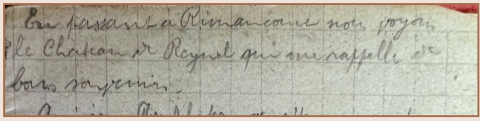 En passant à Rimaucourt nous voyons
le Château de Reynel qui me rappelle de
bons souvenirs.